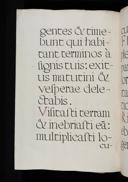 gentes & time-
bunt qui habi-
tant terminos à
signis tuis: exit-
us matutini &
vesperae dele-
ctabis.
Visitasti terram
& inebriasti eã:
multiplicasti lo-
cu-